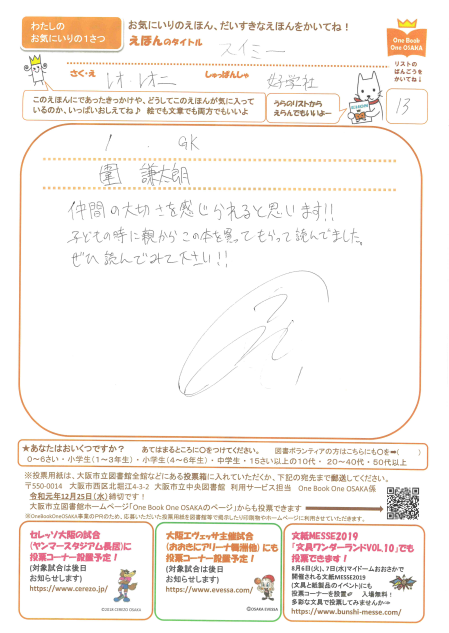 わたしの
お気にいりの1さつ
お気にいりのえほん、だいすきなえほんをかいてね！
えほんのタイトル スイミー
One Book
One OSAKA
さく・え レオ・レオニ しゅっぱんしゃ 好学社
リストの
ばんごうを
かいてね！
このえほんにであったきっかけや、どうしてこのえほんが気に入って
いるのか、いっぱいおしえてね♪ 絵でも文章でも両方でもいいよ
うらのリストから
えらんでもいいよー
13
1 . GK
圍 謙太朗
仲間の大切さを感じられると思います!!
子どもの時に親からこの本を買ってもらって読んでました。
ぜひ読んでみて下さい!!
★あなたはおいくつですか？ あてはまるところに○をつけてください。 図書ボランティアの方はこちらにも○を➡( )
0〜6さい・小学生（1〜3年生）・小学生（4〜6年生）・中学生・15さい以上の10代・20〜40代・50代以上
※投票用紙は、大阪市立図書館全館などにある投票箱に入れていただくか、下記の宛先まで郵送してください。
〒550-0014 大阪市西区北堀江4-3-2 大阪市立中央図書館 利用サービス担当 One Book One OSAKA係
令和元年12月25日（水）締切です！
大阪市立図書館ホームページ「One Book One OSAKAのページ」からも投票できます
※OneBookOneOSAKA事業のPRのため、応募いただいた投票用紙を図書館等で掲示したり印刷物やホームページに利用させていただきます。
セレッソ大阪の試合
（ヤンマースタジアム長居）に
投票コーナー設置予定！
(対象試合は後日
お知らせします)
https://www.cerezo.jp/
©2018 CEREZO OSAKA
大阪エヴェッサ主催試合
（おおきにアリーナ舞洲他）にも
投票コーナー設置予定！
(対象試合は後日
お知らせします)
https://www.evessa.com/
©OSAKA EVESSA
文紙MESSE2019
「文具ワンダーランドVOL.10」でも
投票できます！
8月6日(火)、7日(水)マイドームおおさかで
開催される文紙MESSE2019
(文具と紙製品のイベント)にも
投票コーナーを設置 入場無料！
多彩な文具で投票してみませんか
https://www.bunshi-messe.com/